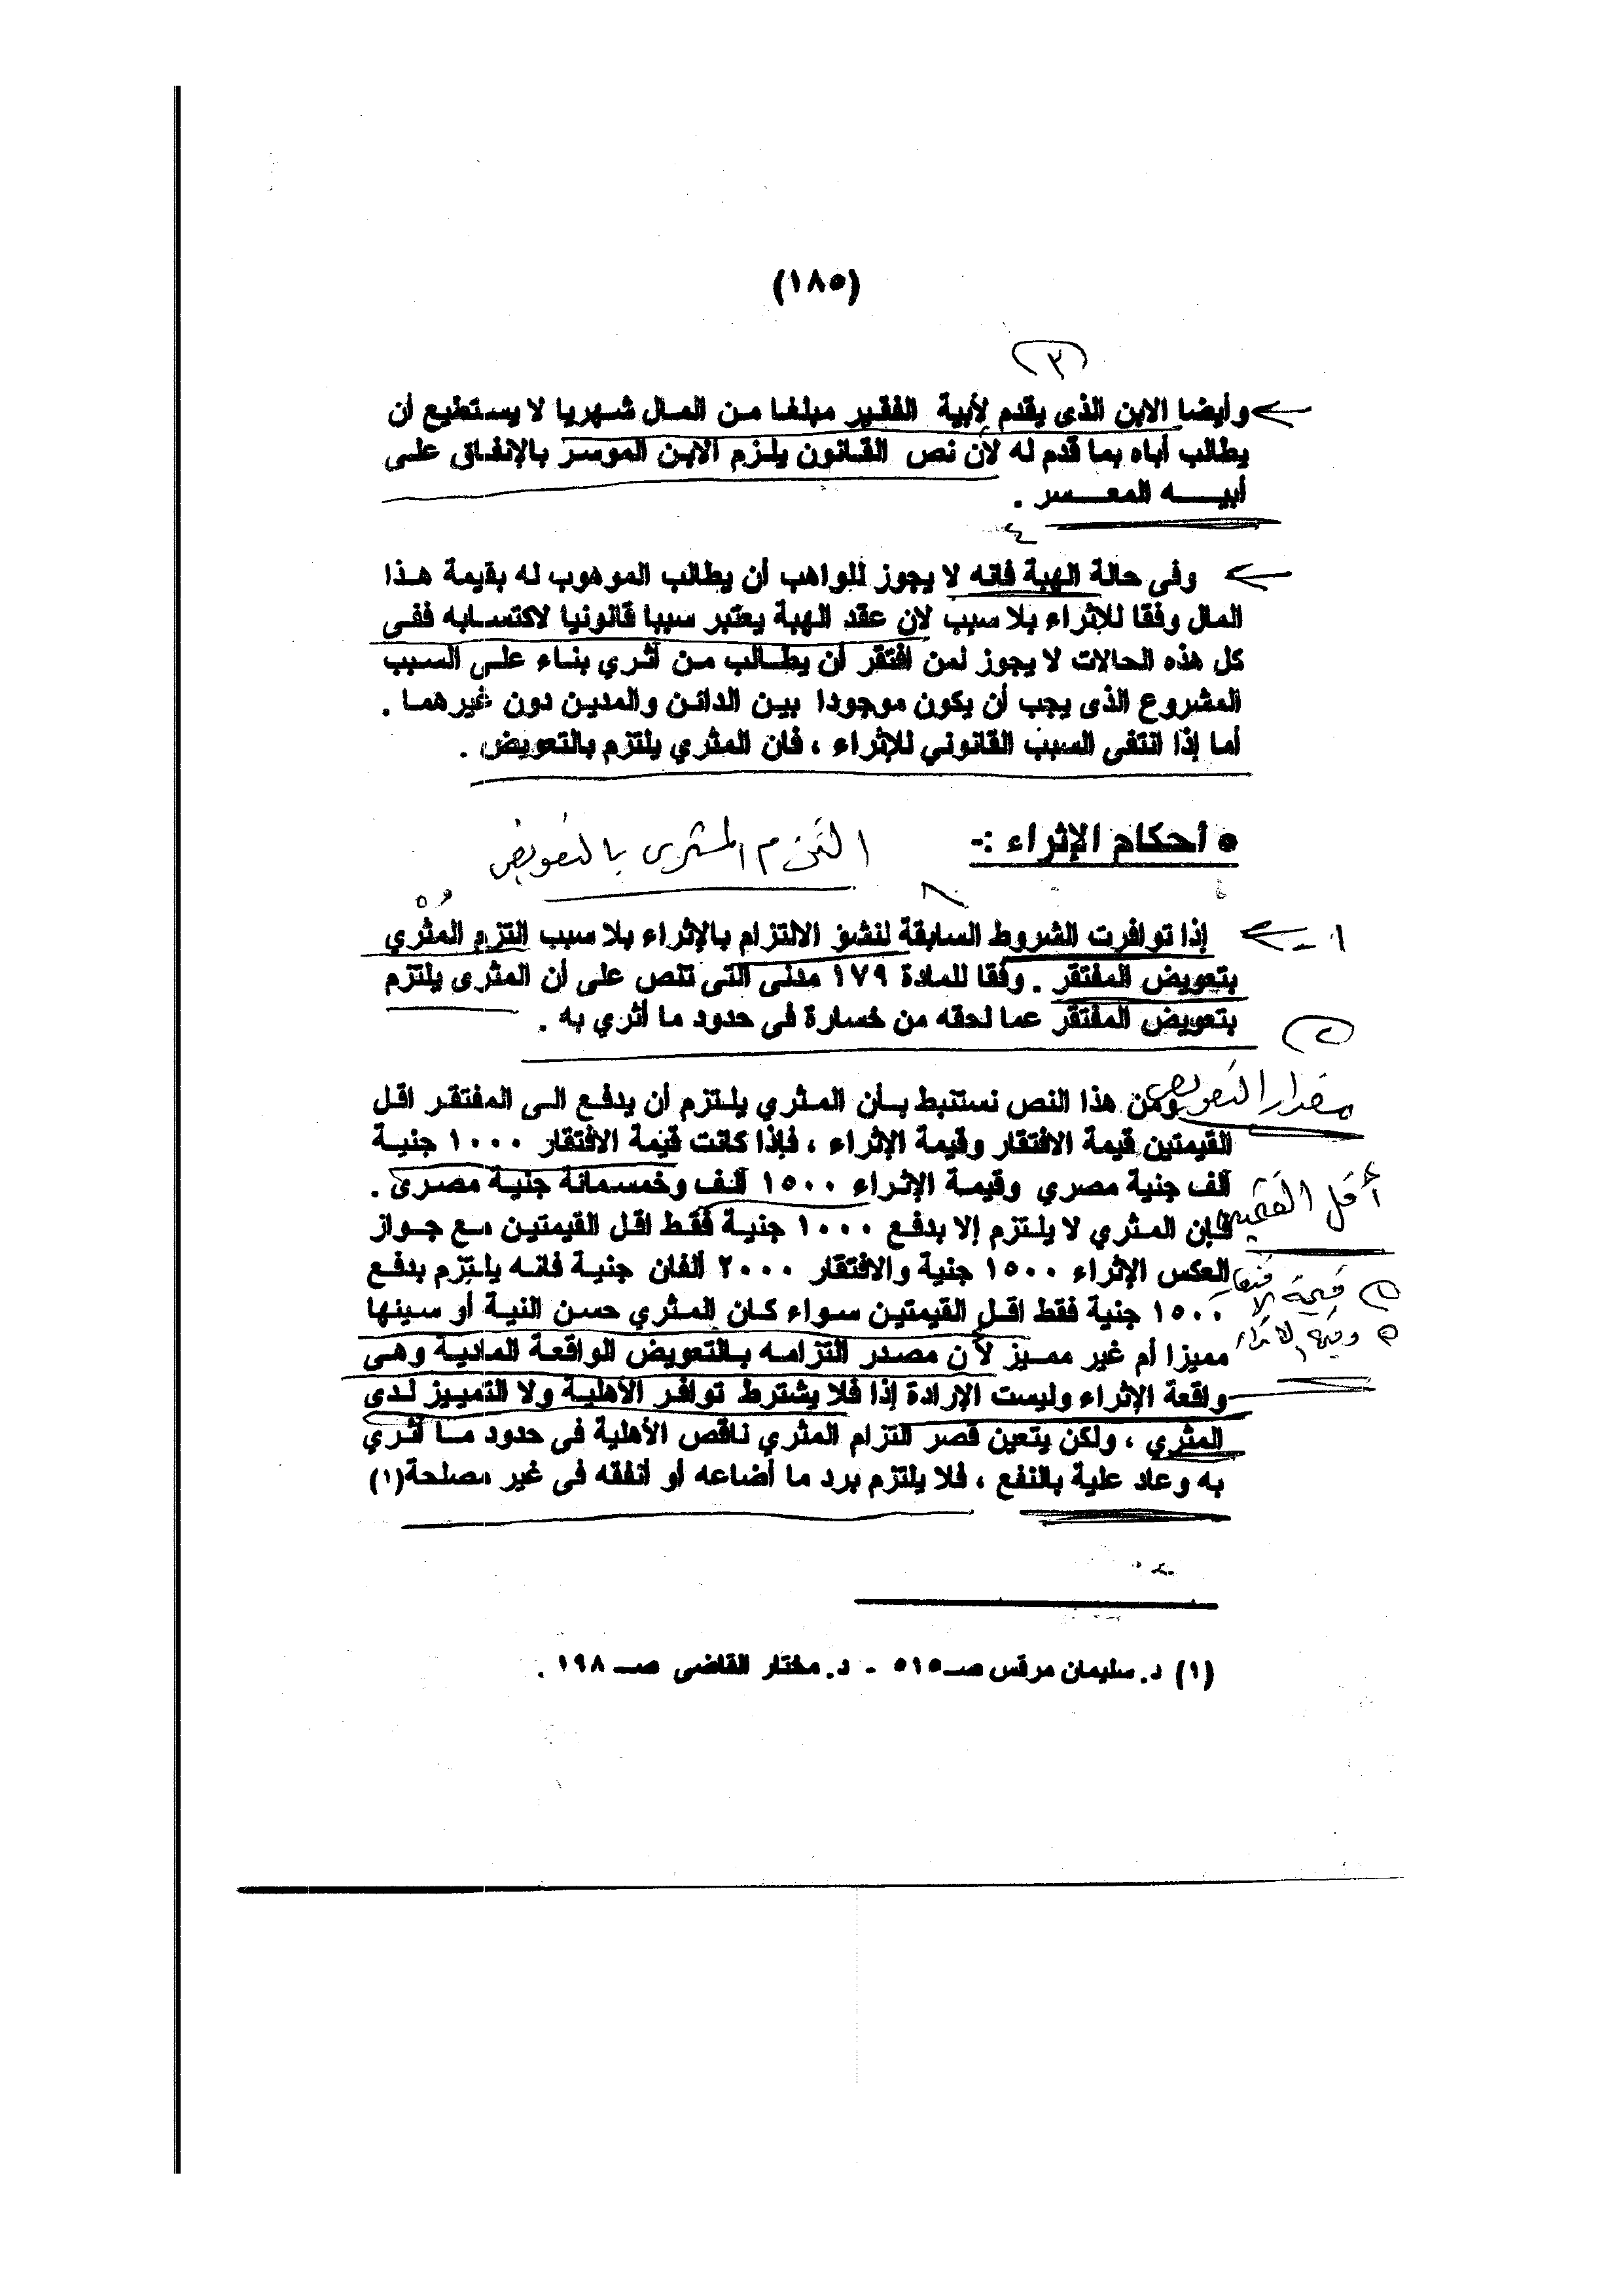 (١٨٥)
(٣)
وأيضا الابن الذى يقدم لأبية الفقير مبلغا من المال شهريا لا يستطيع أن
يطالب أباه بما قدم له لأن نص القانون يلزم الابن الموسر بالإنفاق على
أبيه المعسر .
٤
وفى حالة الهبة فانه لا يجوز للواهب أن يطالب الموهوب له بقيمة هذا
المال وفقا للإثراء بلا سبب لان عقد الهبة يعتبر سببا قانونيا لاكتسابه ففى
كل هذه الحالات لا يجوز لمن افتقر أن يطالب من أثري بناء على السبب
المشروع الذى يجب أن يكون موجودا بين الدائن والمدين دون غيرهما .
أما إذا انتفى السبب القانوني للإثراء ، فان المثري يلتزم بالتعويض .
• أحكام الإثراء :-
التزام المثرى بالتعويض
١ -
إذا توافرت الشروط السابقة لنشؤ الالتزام بالإثراء بلا سبب التزم المثري
بتعويض المفتقر . وفقا للمادة ١٧٩ مدنى التى تنص على أن المثرى يلتزم
بتعويض المفتقر عما لحقه من خسارة فى حدود ما أثري به .
مقدار التعويض
ومن هذا النص نستنبط بأن المثري يلتزم أن يدفع الى المفتقر اقل
القيمتين قيمة الافتقار وقيمة الإثراء ، فإذا كانت قيمة الافتقار ١٠٠٠ جنية
ألف جنية مصري وقيمة الإثراء ١٥٠٠ ألف وخمسمائة جنية مصرى .
أقل القيمتين
فإن المثري لا يلتزم إلا بدفع ١٠٠٠ جنية فقط اقل القيمتين مع جواز
العكس الإثراء ١٥٠٠ جنية والافتقار ٢٠٠٠ ألفان جنية فانه يلتزم بدفع
قيمة الافتقار
١٥٠٠ جنية فقط اقل القيمتين سواء كان المثري حسن النية أو سينها
وقيمة الاثراء
مميزا أم غير مميز لأن مصدر التزامه بالتعويض الواقعة المادية وهى
واقعة الإثراء وليست الإرادة إذا فلا يشترط توافر الأهلية ولا التمييز لدى
المثري ، ولكن يتعين قصر التزام المثري ناقص الأهلية فى حدود ما أثري
به وعاد علية بالنفع ، فلا يلتزم برد ما أضاعه أو أنفقه فى غير مصلحة(١)
(١) د. سليمان مرقس صـ٥١٥ - د. مختار القاضى صـ ١٩٨ .